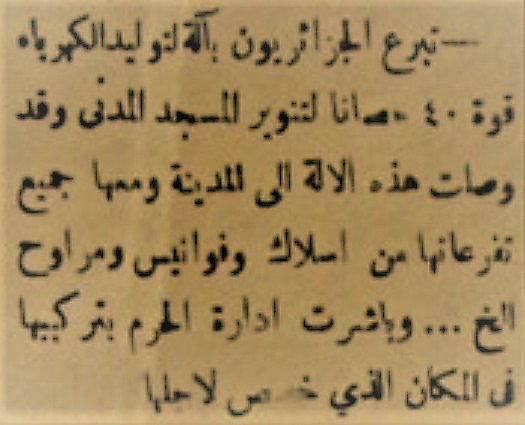 — تبرع الجزائريون بآلة لتوليد الكهرباء
قوة ٤٠ حصانا لتنوير المسجد المدنى وقد
وصلت هذه الالة الى المدينة ومعها جميع
تفرعاتها من اسلاك وفوانيس ومراوح
الخ ... وباشرت ادارة الحرم بتركيبها
فى المكان الذي خصص لاجلها